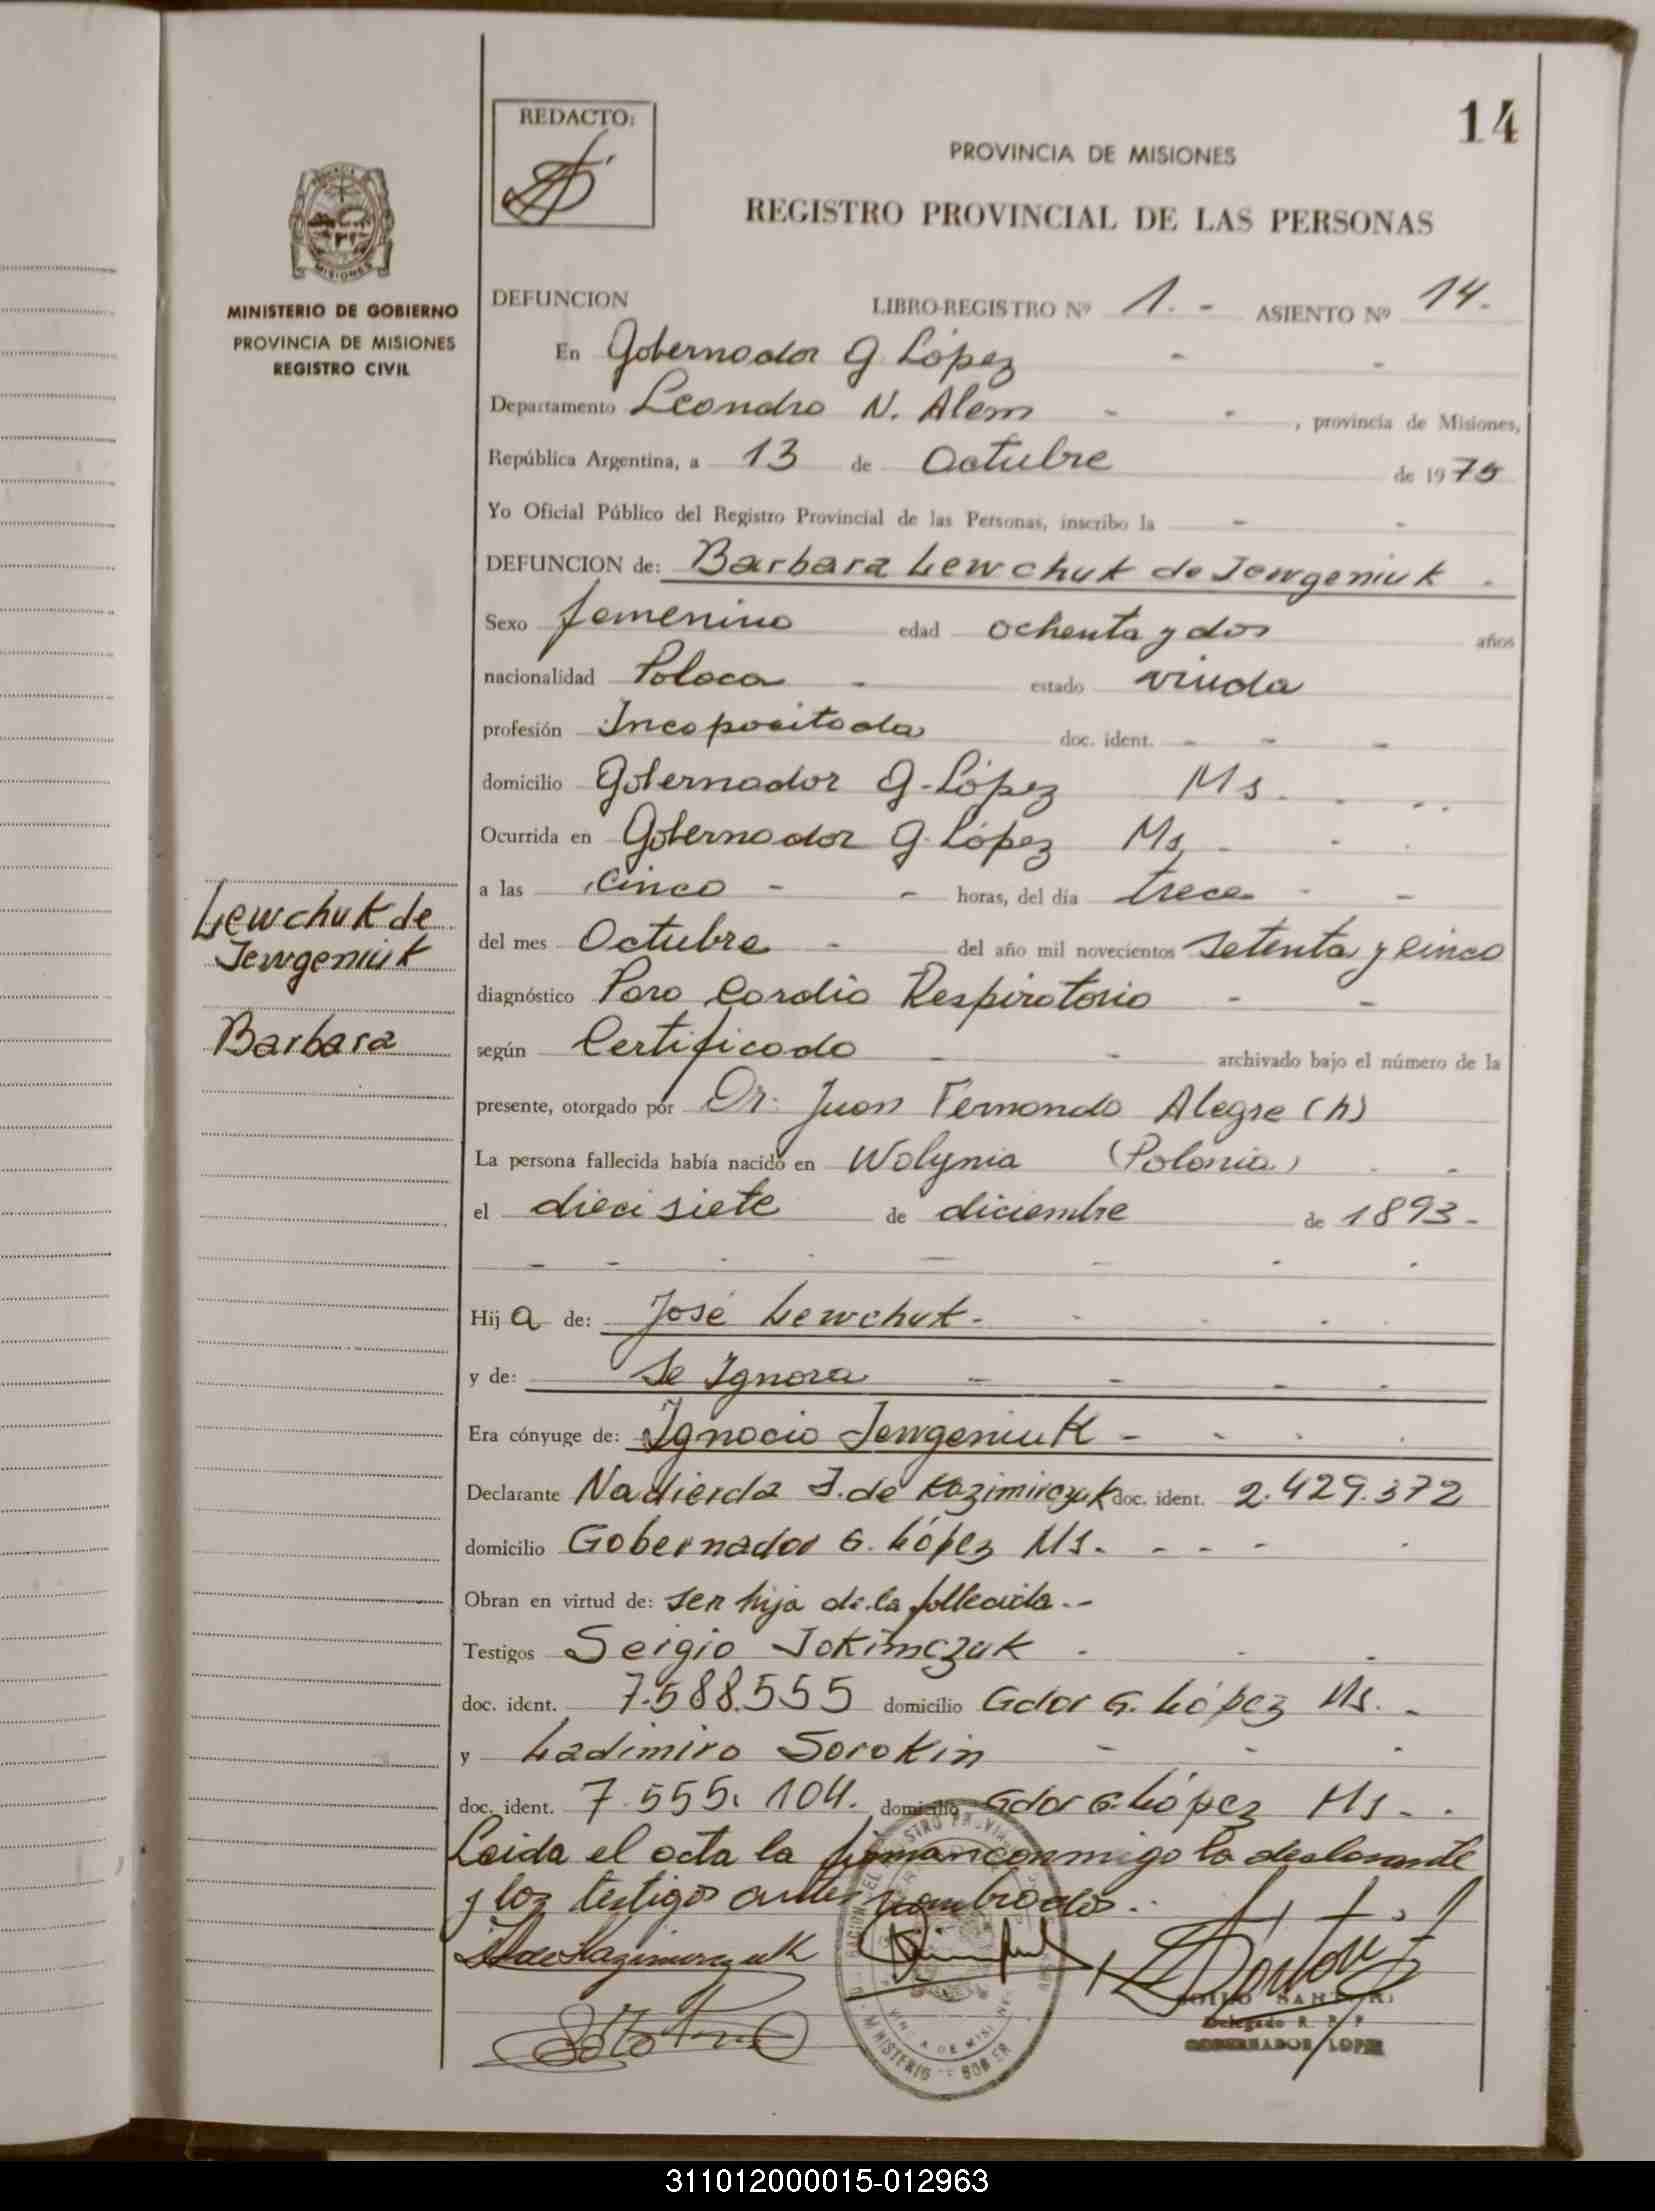 14
REDACTO:
PROVINCIA DE MISIONES
REGISTRO PROVINCIAL DE LAS PERSONAS
MISIONES
MINISTERIO DE GOBIERNO
PROVINCIA DE MISIONES
REGISTRO CIVIL
DEFUNCION LIBRO-REGISTRO Nº 1. - ASIENTO Nº 14.
En Gobernador G. López - -
Departamento Leandro N. Alem - - , provincia de Misiones,
República Argentina, a 13 de Octubre de 1975
Yo Oficial Público del Registro Provincial de las Personas, inscribo la - -
DEFUNCION de: Barbara Lewchuk de Jewgeniuk .
Sexo femenino edad ochenta y dos años
nacionalidad Polaca - estado viuda
profesión Incapacitada doc. ident. - - -
domicilio Gobernador G. López Ms. - - -
Ocurrida en Gobernador G. López Ms, - - .
a las cinco - - horas, del día trece - -
Lewchuk de
Jewgeniuk
Barbara
del mes Octubre - del año mil novecientos setenta y cinco
diagnóstico Paro Cardio Respiratorio - -
según Certificado - - archivado bajo el número de la
presente, otorgado por Dr. Juan Fernando Alegre (h)
La persona fallecida había nacido en Wolynia (Polonia) . -
el diecisiete de diciembre de 1893.-
Hija de: José Lewchuk - - . . .
y de: Se Ignora - - - .
Era cónyuge de: Ignacio Jewgeniuk - - . .
Declarante Nadierda J. de Kazimirczuk doc. ident. 2.429.372
domicilio Gobernador G. López Ms. - - - .
Obran en virtud de: ser hija de la fallecida.-
Testigos Sergio Jokimczuk - - .
doc. ident. 7.588.555 domicilio Gdor G. López Ms. -
y Ladimiro Sorokin - - .
doc. ident. 7.555.104. domicilio Gdor G. López Ms. - .
Leida el acta la firman conmigo la declarante
y los testigos antes nombrados.-
Delegado R. P. P.
GOBERNADOR LOPEZ
311012000015-012963